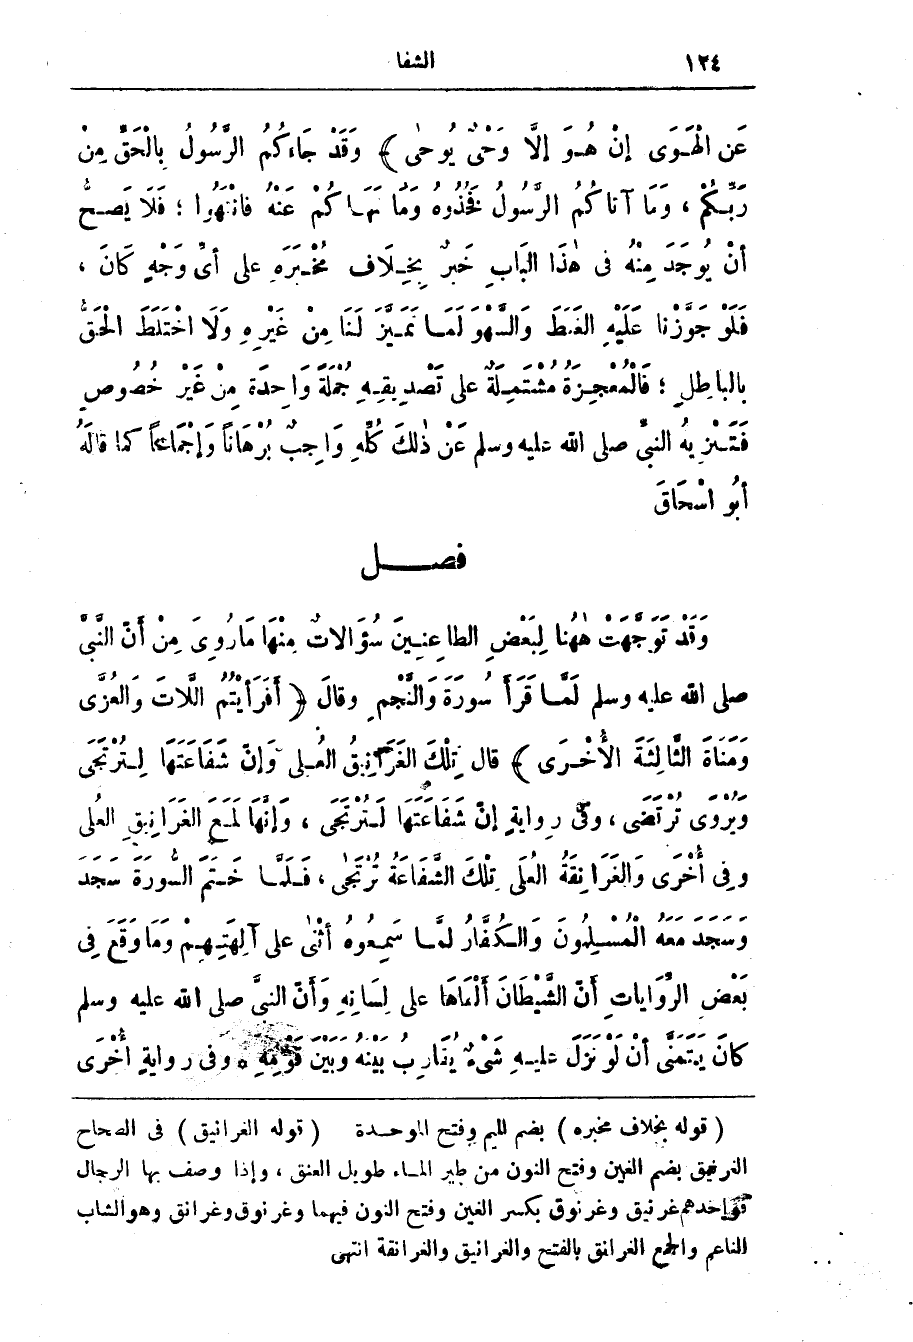 ١٢٤ الشفا
عَن الْهَوَى إنْ هُوَ إلَّا وَحْىٌ يُوحٰى ﴾ وَقَدْ جَاءَكُمُ الرَّسُولُ بِالْحَقِّ مِنْ
رَبِّكُمْ ، وَمَا آتاكُمُ الرَّسُولُ فَخُذُوهُ وَمَا نَهَاكُمْ عَنْهُ فانْتَهُوا ؛ فَلَا يَصحُّ
أنْ يُوجَدَ مِنْهُ فى هٰذَا البَابِ خَبَرٌ بِخِلَاف مُخْبَرِهِ على أىّ وَجْهٍ كَانَ ،
فَلَوْ جَوَّزْنا عَلَيْهِ الغَلَطَ وَالسَّهْوَ لَمَا تَمَيَّزَ لَنَا مِنْ غَيْرِهِ وَلَا اخْتَلَطَ الْحَقُّ
بالباطِلِ ؛ فَالْمُعْجِزَةُ مُشْتَمِلَةٌ على تَصْدِيقِهِ جُمْلَةً وَاحِدَةً مِنْ غَيْرِ خُصُوصٍ
فَتَنْزِيهُ النبيِّ صلى الله عليه وسلم عَنْ ذٰلِكَ كُلِّهِ وَاجِبٌ بُرْهَاناً وَإجْمَاعاً كما قالَهُ
أبُو اسْحَاقَ
فصل
وَقَدْ تَوَجَّهَتْ هٰهُنا لِبَعْضِ الطاعِنِينَ سُؤَالاتٌ مِنْهَا مَارُوِىَ مِنْ أَنّ النَّبيَّ
صلى الله عليه وسلم لَمَّا قَرَأَ سُورَةَ وَالنَّجْمِ وقالَ ﴿ أَفَرَأيْتُمُ اللَّاتَ وَالعُزَّى
وَمَنَاةَ الثَّالِثَةَ الأُخْرَى ﴾ قال تِلْكَ الغَرَانِيقُ العُلى وَإنّ شَفَاعَتَهَا لَتُرْتَجَى
وَيُرْوَى تُرْتَضَى ، وفى رِوايةٍ إنّ شَفَاعَتَهَا لَتُرْتَجَى ، وَإنَّهَا لَمَعَ الغَرَانِيقِ العُلَى
وفِى أُخْرَى وَالغَرَانِقَةُ العُلَى تِلْكَ الشَّفَاعَةُ تُرْتَجٰى ، فَلَمَّا خَتَمَ السُّورَةَ سَجَدَ
وَسَجَدَ مَعَهُ الْمُسْلِمُونَ وَالكُفَّارُ لمَّا سَمِعُوهُ أثْنٰى على آلِهَتِهِمْ وَمَا وَقَعَ فِى
بَعْضِ الرِّوَاياتِ أنّ الشَّيْطَانَ ألْقاهَا على لِسَانِهِ وَأنّ النبيَّ صلى الله عليه وسلم
كانَ يَتَمَنَّى أنْ لَوْ نَزَلَ عليهِ شَىْءٌ يُقَارِبُ بَيْنَهُ وَبَيْنَ قَوْمِهِ ه وفى رِوايةٍ أُخْرَى
( قوله بخلاف مخبره ) بضم الميم وفتح الموحدة ( قوله الغرانيق ) فى الصحاح
الغرنيق بضم الغين وفتح النون من طير الماء طويل العنق ، وإذا وصف بها الرجال
فواحدهم غرنيق وغرنوق بكسر الغين وفتح النون فيهما وغرنوق وغرانق وهو الشاب
الناعم والجمع الغرانق بالفتح والغرانيق والغرانقة انتهى